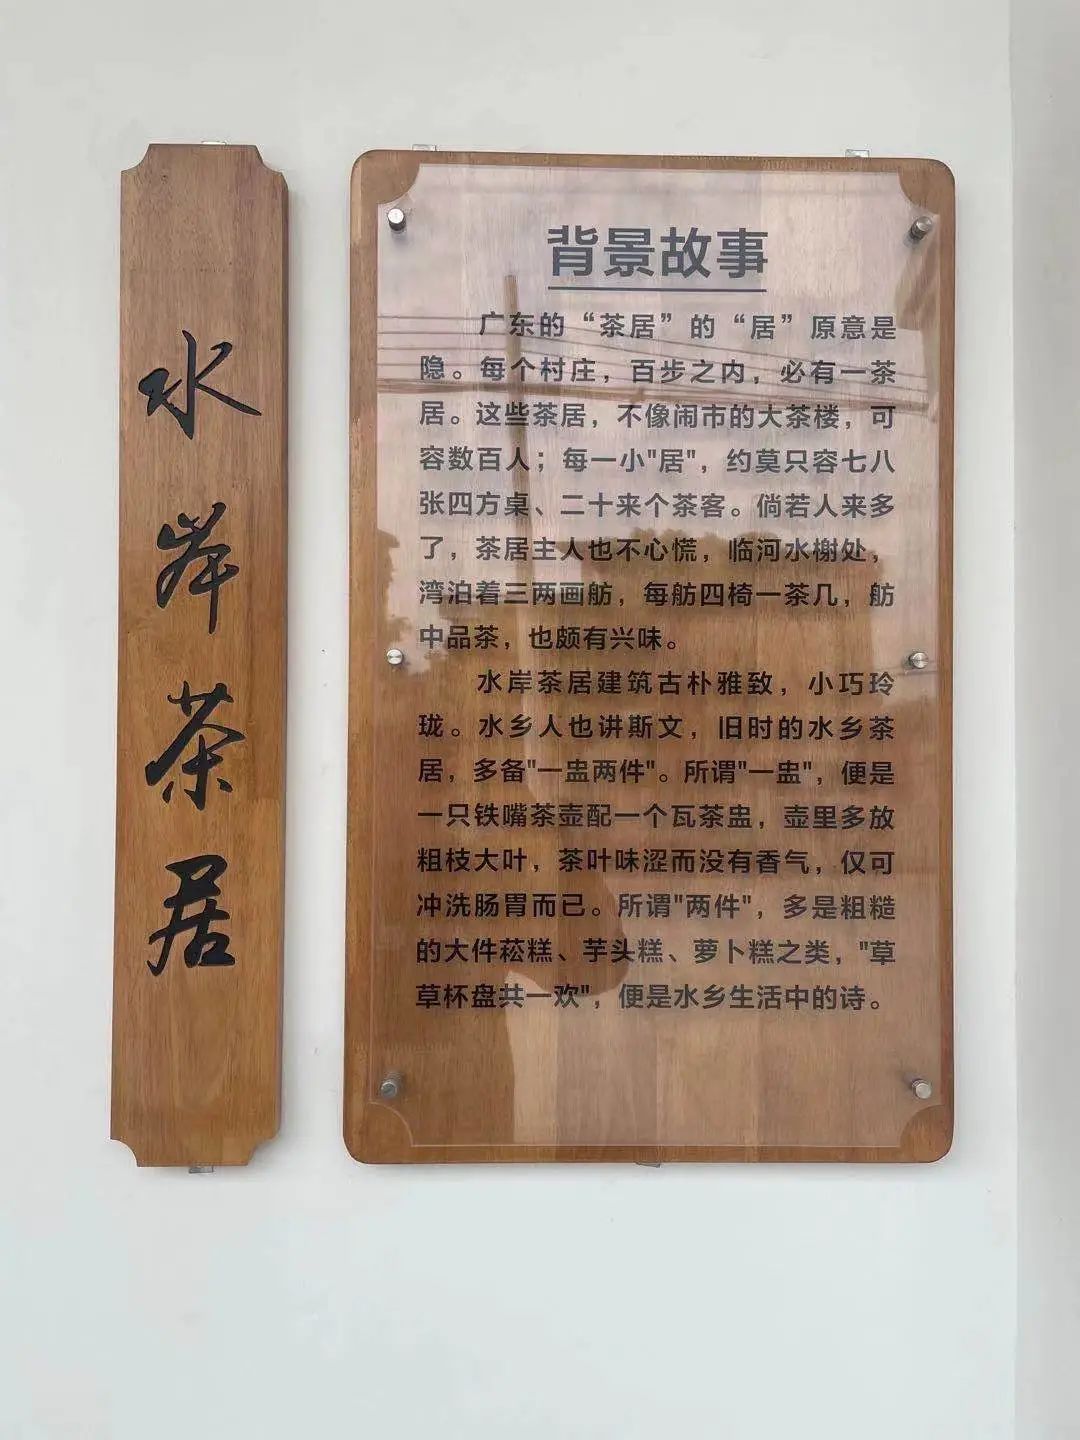 水岸茶居
背景故事
广东的“茶居”的“居”原意是
隐。每个村庄，百步之内，必有一茶
居。这些茶居，不像闹市的大茶楼，可
容数百人；每一小"居"，约莫只容七八
张四方桌、二十来个茶客。倘若人来多
了，茶居主人也不心慌，临河水榭处，
湾泊着三两画舫，每舫四椅一茶几，舫
中品茶，也颇有兴味。
水岸茶居建筑古朴雅致，小巧玲
珑。水乡人也讲斯文，旧时的水乡茶
居，多备"一盅两件"。所谓"一盅"，便是
一只铁嘴茶壶配一个瓦茶盅，壶里多放
粗枝大叶，茶叶味涩而没有香气，仅可
冲洗肠胃而已。所谓"两件"，多是粗糙
的大件菘糕、芋头糕、萝卜糕之类，"草
草杯盘共一欢"，便是水乡生活中的诗。